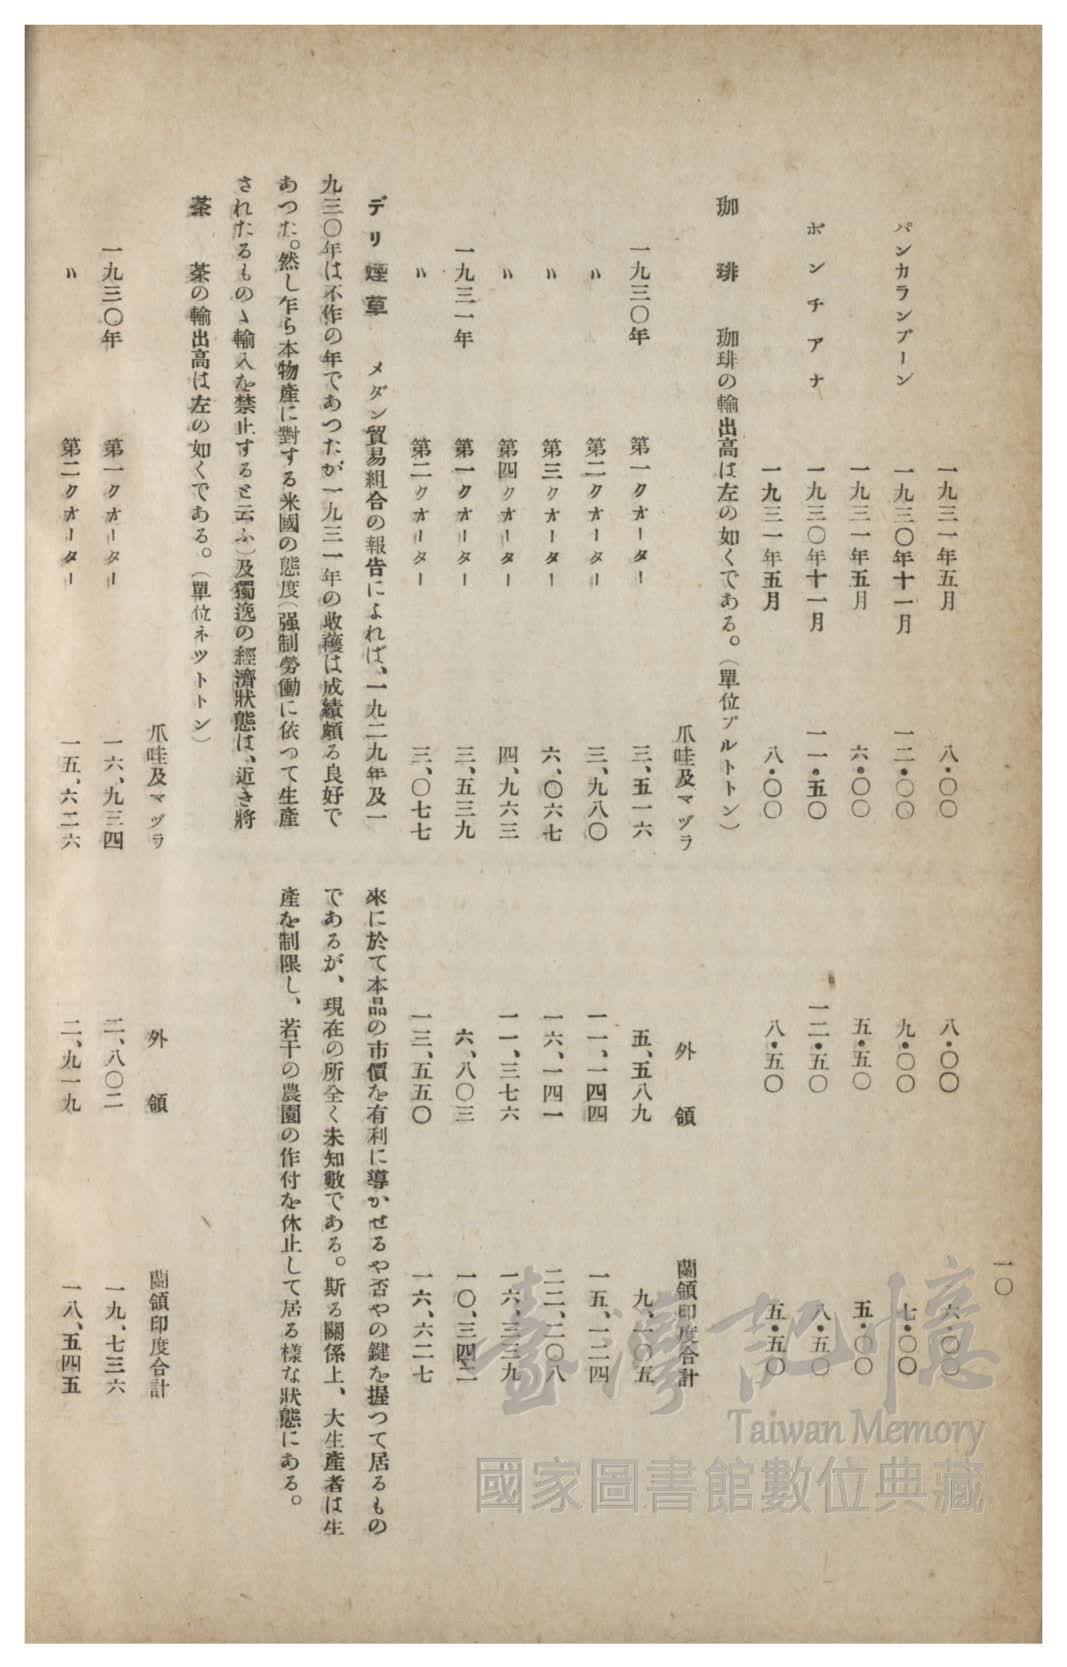 一〇
一九三一年五月　八・〇〇　八・〇〇　六・〇〇
パンカランブーン　一九三〇年十一月　一二・〇〇　九・〇〇　七・〇〇
一九三一年五月　六・〇〇　五・五〇　五・〇〇
ポンチアナ　一九三〇年十一月　一一・五〇　一二・五〇　八・五〇
一九三一年五月　八・〇〇　八・五〇　五・五〇
珈琲　珈琲の輸出高は左の如くである。（單位グルトトン）
爪哇及マヅラ　外領　蘭領印度合計
一九三〇年　第一クオーター　三、五一六　五、五八九　九、一〇五
〃　第二クオーター　三、九八〇　一一、一四四　一五、一二四
〃　第三クオーター　六、〇六七　一六、一四一　二二、二〇八
〃　第四クオーター　四、九六三　一一、三七六　一六、三三九
一九三一年　第一クオーター　三、五三九　六、八〇三　一〇、三四二
〃　第二クオーター　三、〇七七　一三、五五〇　一六、六二七
デリ煙草　メダン貿易組合の報告によれば、一九二九年及一
九三〇年は不作の年であつたが一九三一年の收穫は成績頗る良好で
あつた。然し乍ら本物產に對する米國の態度（强制勞働に依つて生產
されたるものゝ輸入を禁止すると云ふ）及獨逸の經濟狀態は、近き將
來に於て本品の市價を有利に導かせるや否やの鍵を握つて居るもの
であるが、現在の所全く未知數である。斯る關係上、大生產者は生
產を制限し、若干の農園の作付を休止して居る樣な狀態にある。
茶　茶の輸出高は左の如くである。（單位ネツトトン）
爪哇及マヅラ　外領　蘭領印度合計
一九三〇年　第一クオーター　一六、九三四　二、八〇二　一九、七三六
〃　第二クオーター　一五、六二六　二、九一九　一八、五四五
臺灣記憶
Taiwan Memory
國家圖書館數位典藏